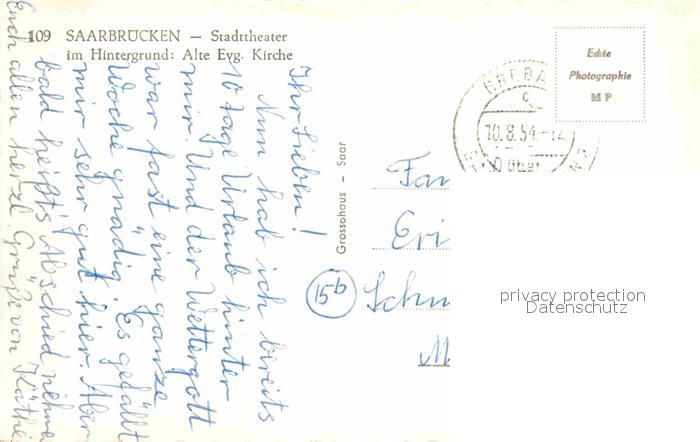 109 SAARBRÜCKEN — Stadttheater
im Hintergrund: Alte Evg. Kirche
Ihr Lieben!
Nun hab ich bereits
10 Tage Urlaub hinter
mir. Und der Wettergott
war fast eine ganze
Woche gnädig. Es gefällt
mir sehr gut hier. Aber
bald heißt's Abschied nehmen
Euch allen herzl. Grüße von Käthe
Grossohaus - Saar
Echte
Photographie
M P
BREBA
c
10.8.54.-12
Fam
Eri
15b Schu
M
privacy protection
Datenschutz